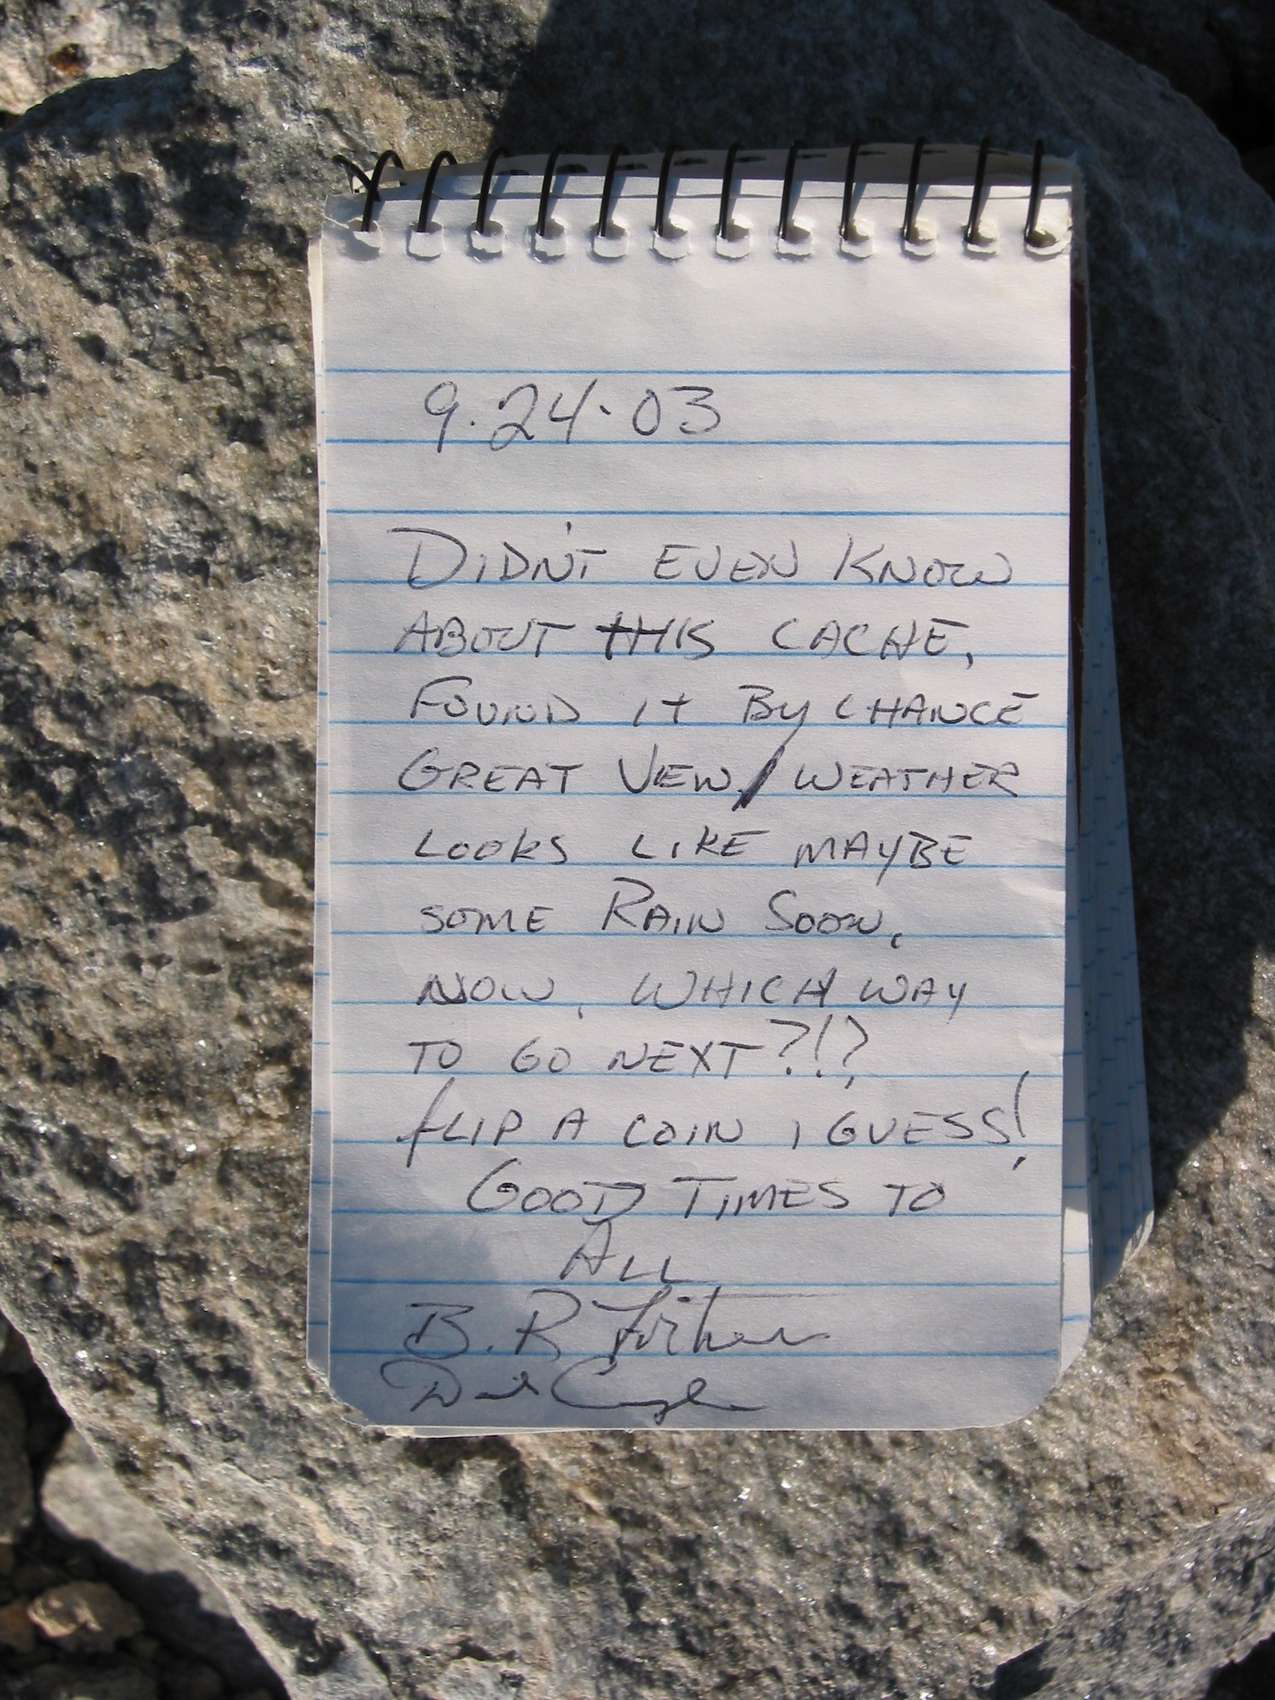 9.24.03
DIDN'T EVEN KNOW
ABOUT THIS CACHE,
FOUND IT BY CHANCE
GREAT VIEW, WEATHER
LOOKS LIKE MAYBE
SOME RAIN SOON.
NOW, WHICH WAY
TO GO NEXT?!?
FLIP A COIN I GUESS!
GOOD TIMES TO
ALL
B. R